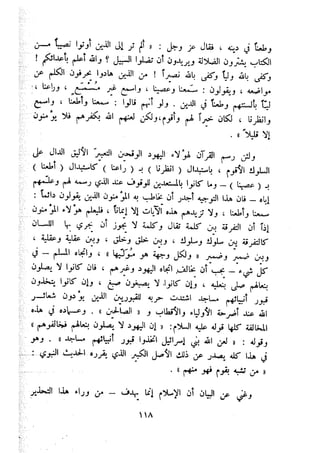 وطعناً في دينه ، فقال عز وجل : « ألم تر إلى الذين أوتوا نصيباً من
الكتاب يشترون الضلالة ويريدون أن تضلوا السبيل ؟ والله أعلم بأعدائكم !
وكفى بالله ولياً وكفى بالله نصيراً ! من الذين هادوا يحرفون الكلم عن
مواضعه ، ويقولون : سمعنا وعصينا ، واسمع غير مسمع ، وراعنا ،
لياً بألسنتهم وطعناً في الدين . ولو أنهم قالوا : سمعنا وأطعنا ، واسمع
وانظرنا ، لكان خيراً لهم وأقوم، ولكن لعنهم الله بكفرهم فلا يؤمنون
إلا قليلاً » .
ولئن رسم القرآن لهؤلاء اليهود الوقحين التعبير الأليق الدال على
السلوك الأقوم ، باستبدال ( انظرنا ) بـ ( راعنا ) كاستبدال ( أطعنا )
بـ ( عصينا ) – وما كانوا بالمستعدين للوقوف عند الذي رسمه لهم وعلمهم
إياه – فإن هذا التوجيه أجدر أن يخاطب به المؤمنون الذين يقولون دائماً :
سمعنا وأطعنا ، ولا تزيدهم هذه الآيات إلا إيماناً ، فليعلم هؤلاء المؤمنون
إذاً أن التفرقة بين كلمة تقال وكلمة لا يجوز أن يجري بها اللسان
كالتفرقة بين سلوك وسلوك ، وبين خلق وخلق ، وبين عقلية وعقلية ،
وبين ضمير وضمير « ولكل وجهة هو موليها » ، واتجاه المسلم – في
كل شيء – يجب أن يخالف اتجاه اليهود وغيرهم ، فإن كانوا لا يصلون
بنعالهم صلى بنعليه ، وإن كانوا لا يصبغون صبغ ، وإن كانوا يتخذون
قبور أنبيائهم مساجد اشتدت حربه للقبوريين الذين يؤدون شعائر
الله عند أضرحة الأولياء والأقطاب و « الصالحين » . وعماده في هذه
المخالفة كلها قوله عليه السلام: « إن اليهود لا يصلون بنعالهم فخالفوهم »
وقوله : « لعن الله بني إسرائيل اتخذوا قبور أنبيائهم مساجد » . وهو
في هذا كله يصدر عن ذلك الأصل الكبير الذي يقرره الحديث النبوي :
« من تشبه بقوم فهو منهم » .
وغني عن البيان أن الإسلام إنما يهدف – من وراء هذا التحذير
١١٨